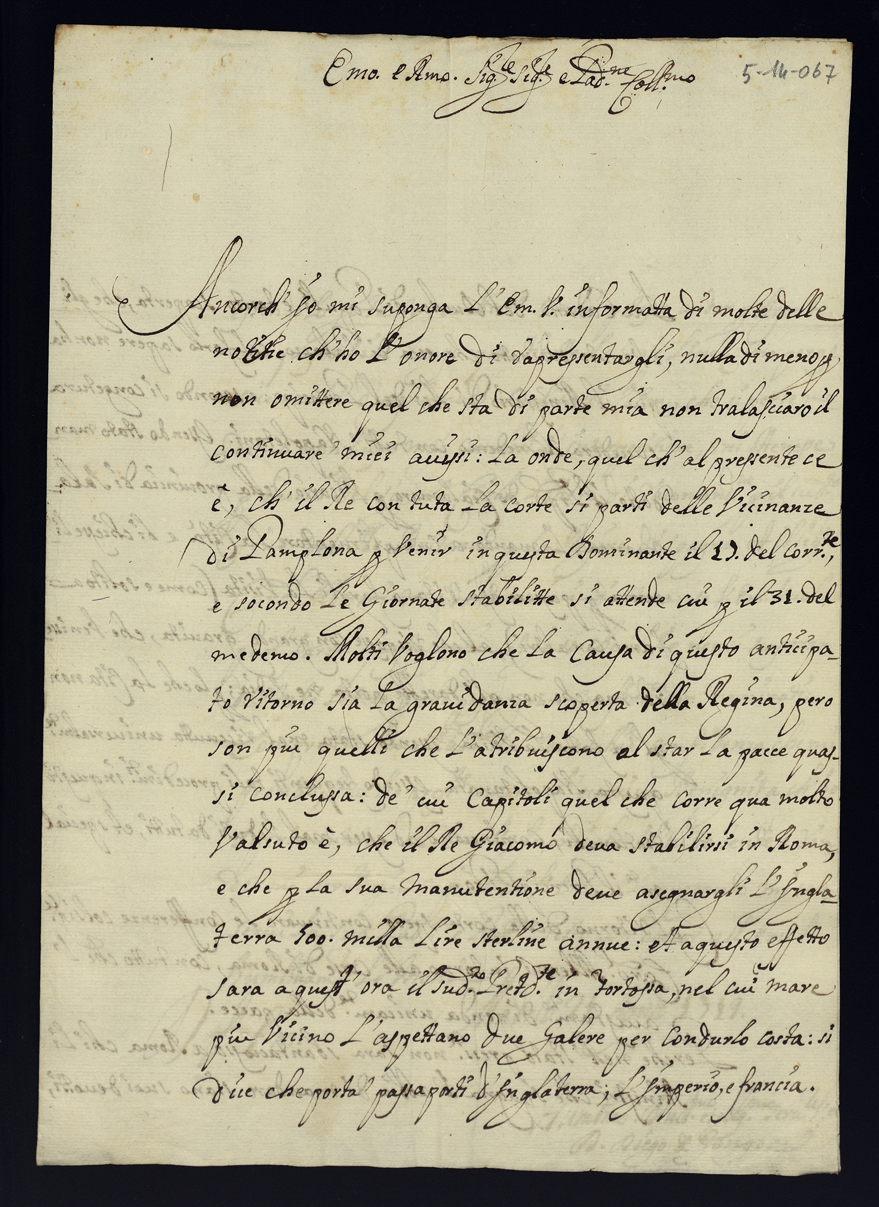 Emo. e Rmo. Sig.re Sig.re e Pad.ne Coll.mo
5-14-067
Ancorch' jo mi suponga L'Em. V. informatta di molte delle
notitie ch'ho L'onore di rapressentargli, nulladimeno p
non omittere quel che sta di parte mia non tralasciaro il
continuare miei auisi: La onde, quel ch'al pressente ce
è, ch'il Re con tuta La corte si parti delle Vicinanze
di Pamplona p Venir in questa Dominante il del corr.te,
e socondo Le Giornate stabilitte si attende cui p il 31. del
medemo. Molti Voglono che La Causa di questo anticipa-
to ritorno sia La grauidanza scoperta della Regina, pero
son piu quelli che L'atribuiscono al star La pacce quas-
si conclussa: de' cui Capitoli quel che corre qua molto
Valsuto è, che il Re Giacomo deua stabilirsi in Roma,
e che p La sua manutentione deue asegnargli L'Jngla-
terra 500. milla Lire sterline annue: et a questo effetto
sara a quest'ora il sud.to Pretd.te in Tortossa, nel cui mare
piu Vicino L'aspettano due Galere per condurlo costa: si
dice che porta passaporti d'Jnglaterra, L'Jmperio, e francia.